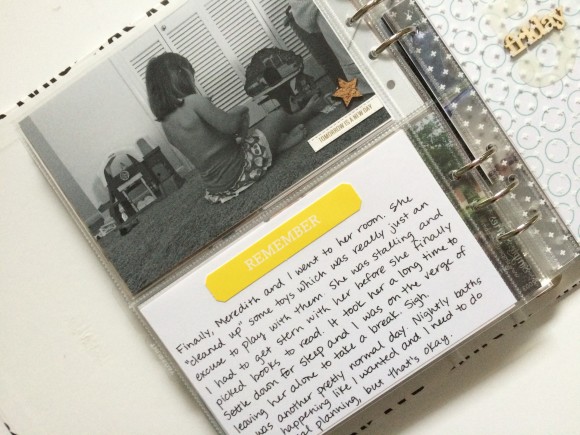 friday
TOMORROW IS A NEW DAY
REMEMBER
Finally, Meredith and I went to her room. She
"cleaned up" some toys which was really just an
excuse to play with them. She was stalling and
I had to get stern with her before she finally
picked books to read. It took her a long time to
settle down for sleep and I was on the verge of
leaving her alone to take a break. Sigh.
was another pretty normal day. Nightly baths
happening like I wanted and I need to do
planning, but that's okay.